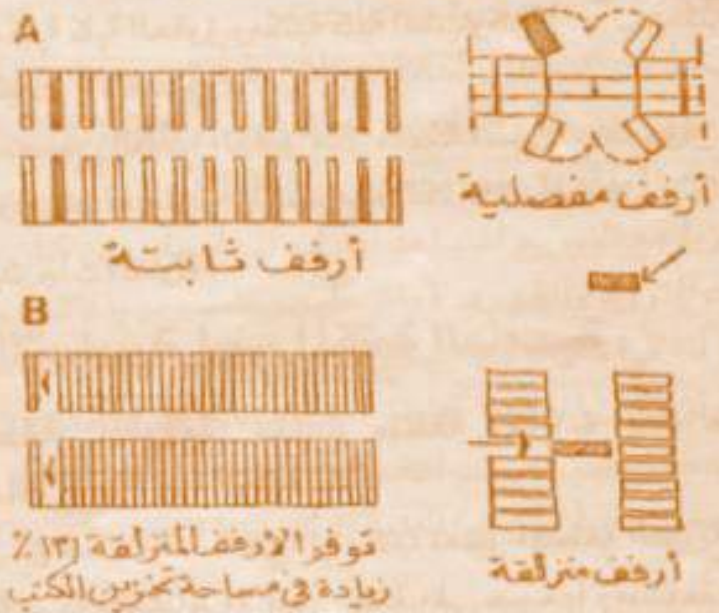 A
أرفف مفصلية
أرفف ثابتة
B
توفر الأرفف المنزلقة ١٣١٪
زيادة في مساحة تخزين الكتب
أرفف منزلقة